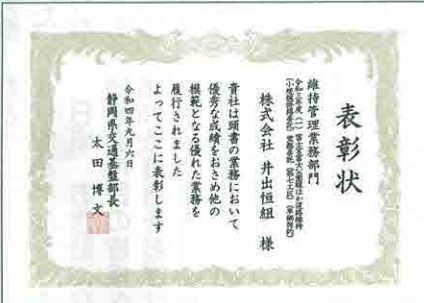 表彰状
維持管理業務部門
株式会社 井出恒組 様
貴社は頭書の業務において
優秀な成績をおさめ他の
模範となる優れた業務を
履行されました
よってここに表彰します
令和四年九月六日
静岡県交通基盤部長
太田博文